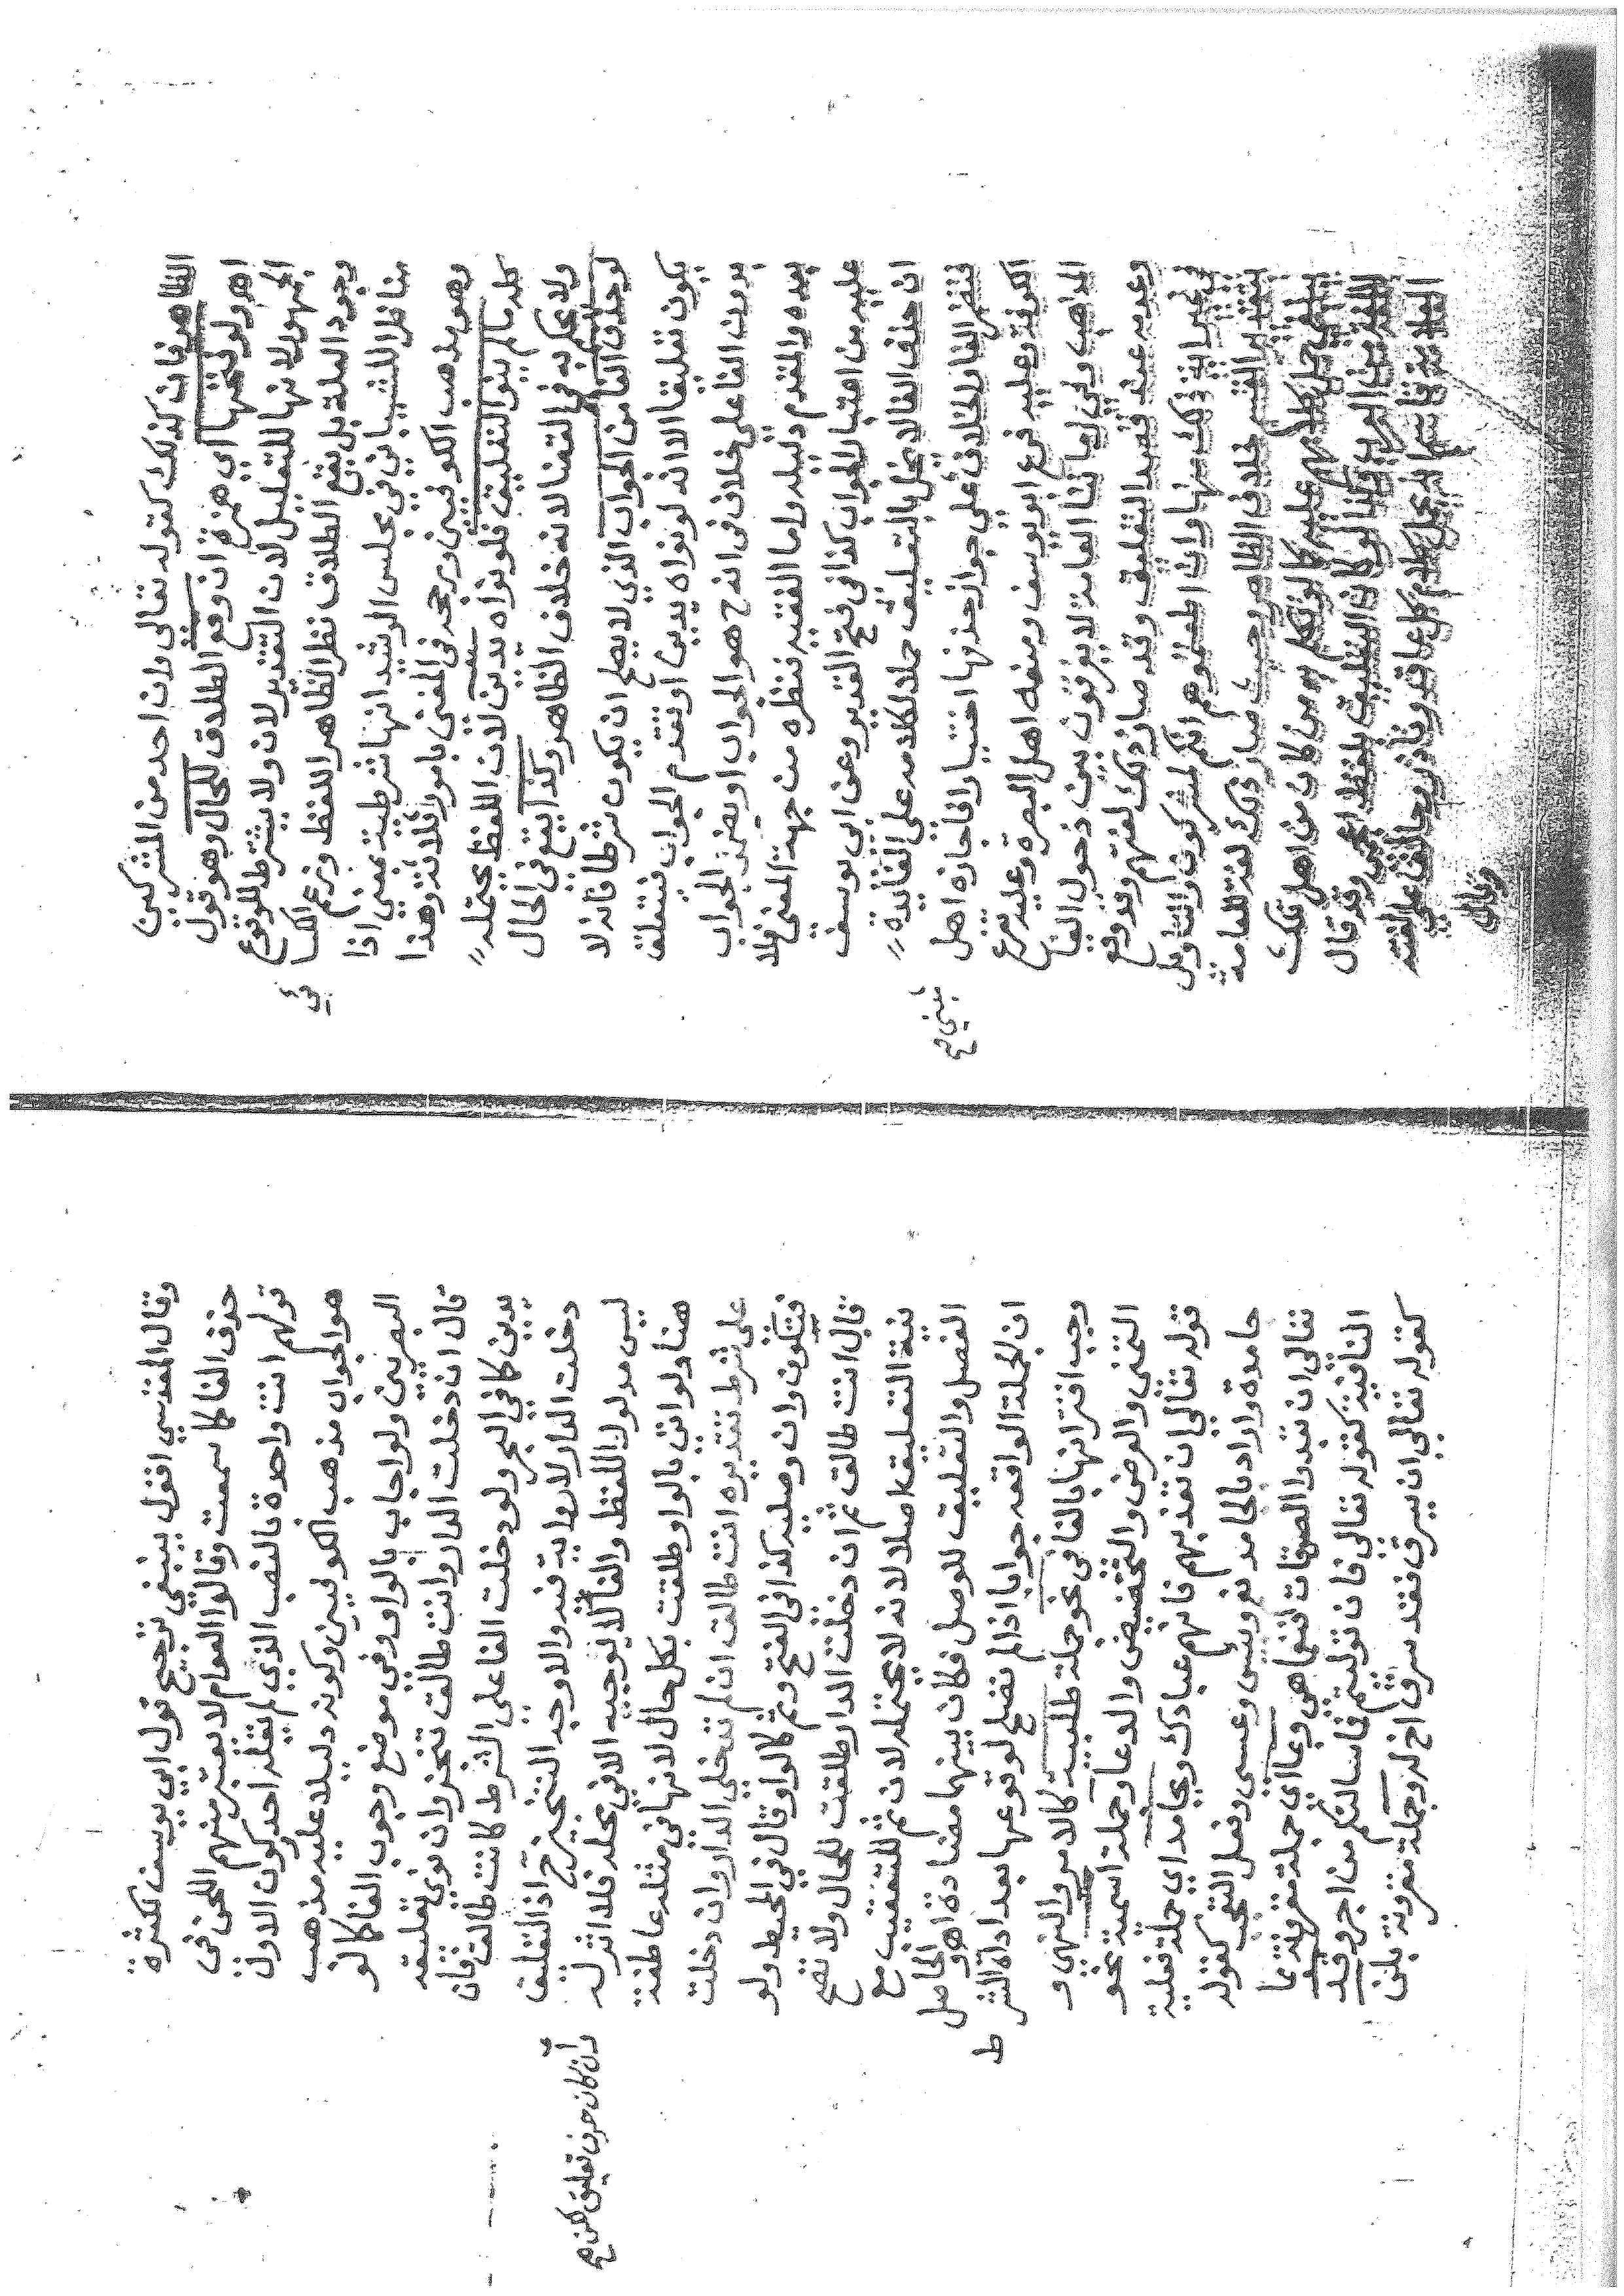 الظاهر فان كذلك كقوله تعالى وان احد من المشركين
اهـ ولو فتحها اي همزة ان وقع الطلاق للحال وهو قول
الجمهور لانها للتعليل لان التقدير لان ولا يشترط للوقوع
وجود العلة بل يقع الطلاق نظرا لظاهر اللفظ وزعم الكسا
ئى صح
مناظرا للشيباني في مجلس الرشيد انها شرطية بمعنى اذا
وهو مذهب الكوفيين ورجحه في المغنى بامور ثلاثة وهذا
كله ما لم ينو التعليق فلو نواه يدين لان اللفظ يحتمله
ولا يحكم به في القضا لانه خلاف الظاهر وكذا يقع في الحال
لو حذف الفا من الجواب الذي لا يصلح ان يكون شرطا فانه لا
يكون تعليقا الا انه لو نواه يدين او تقدم الجواب فيتعلق
بدون الفا على خلاف في انه ح هو الجواب او يضمر الجواب
بعده والمقدم دليله واما الفقيه فنظره من جهة المعنى فلا
عليه من اعتبار الجواب كذا في فتح القدير وعن ابي يوسف
ان حذف الفا لا يخل بالتعليق حملا لكلامه على الفائدة
فتضمر الفا والخلاف على جواز حذفها اختيارا فاجازه اهل
مبنى صح
الكوفة وعليه فرع ابو يوسف ومنعه اهل البصرة وعليه تفرع
المذهب وفي زماننا العامة لا يفرقون بين دخول الفا
وعدمه عند قصد التعليق وقد صار ذلك لغتهم وقد وقع
في غير اية ذلك منها وان اطعتموهم انكم لمشركون والتاويل
بتقدير القسم خلاف الظاهر وحيث صار ذلك لغة للعامة
ينبغي حمل كلامهم عليه كالو تكلم به من كان من اهل تلك
اللغة من العرب وكما لو كان التعليق بلفظ اعجمي وقد قال
العلامة قاسم انه يحمل كلام كل عاقد وناذر وحالف على لغته
وقال
وقال المقدسي اقول ينبغي ترجيح قول ابي يوسف لكثرة
حذف الفا كما سمعت وقالوا العوام لا يعتبر منهم اللحن في
قولهم انت واحدة بالنصب الذي لم يقل احد كون الاول
هو الجواب مذهب الكوفيين وكونه دليلا عليه مذهب
البصريين ولو اجاب بالواو في موضع وجوب الفا كما لو
قال ان دخلت الدار وانت طالق تنجز وان نوى تعليقه
يدين كما في البحر ولو دخلت الفا على الشرط كانت طالق فان
دخلت الدار لا رواية فيه والاوجه التنجيز ح اذ التعليق
ليس مدلول اللفظ والفا لا توجبه الا في محله فلا اثر له
وان كان حرف تعليق لكن صح
هنا ولو اتى بالواو طلقت بكل حال لانها في مثله عاطفة
على شرط تقديره انت طالق ان لم تدخلي الدار وان دخلت
فتكون وان وصلية كذا في الفتح وثم كالواو قال في المحيط ولو
قال انت طالق ثم ان دخلت الدار طلقت للحال ولا تصح
نية التعليق اصلا لانه لا يحتمله لان ثم للتعقيب مع
الفصل والتعليق للوصل فكان بينهما مضادة اهـ والحاصل
ان الجملة الواقعة جوابا اذا لم تصلح لوقوعها بعد اداة الشر
ط
وجب اقترانها بالفا في نحو جملة طلبية كالامر والنهي و
التمني والعرض والتحضيض والدعا وجملة اسمية نحو
قوله تعالى ان تعذبهم فانهم عبادك وبجامد اي جملة فعلية
جامدة واراد بالجامد نعم وبيس وعسى وفعل التعجب كقوله
تعالى ان تبدوا الصدقات فنعما هي وبما اي جملة مقرونة بما
النافية كقوله تعالى فان توليتم فما سالتكم من اجر وقد
كقوله تعالى ان يسرق فقد سرق اخ له وجملة مقرونة بلن